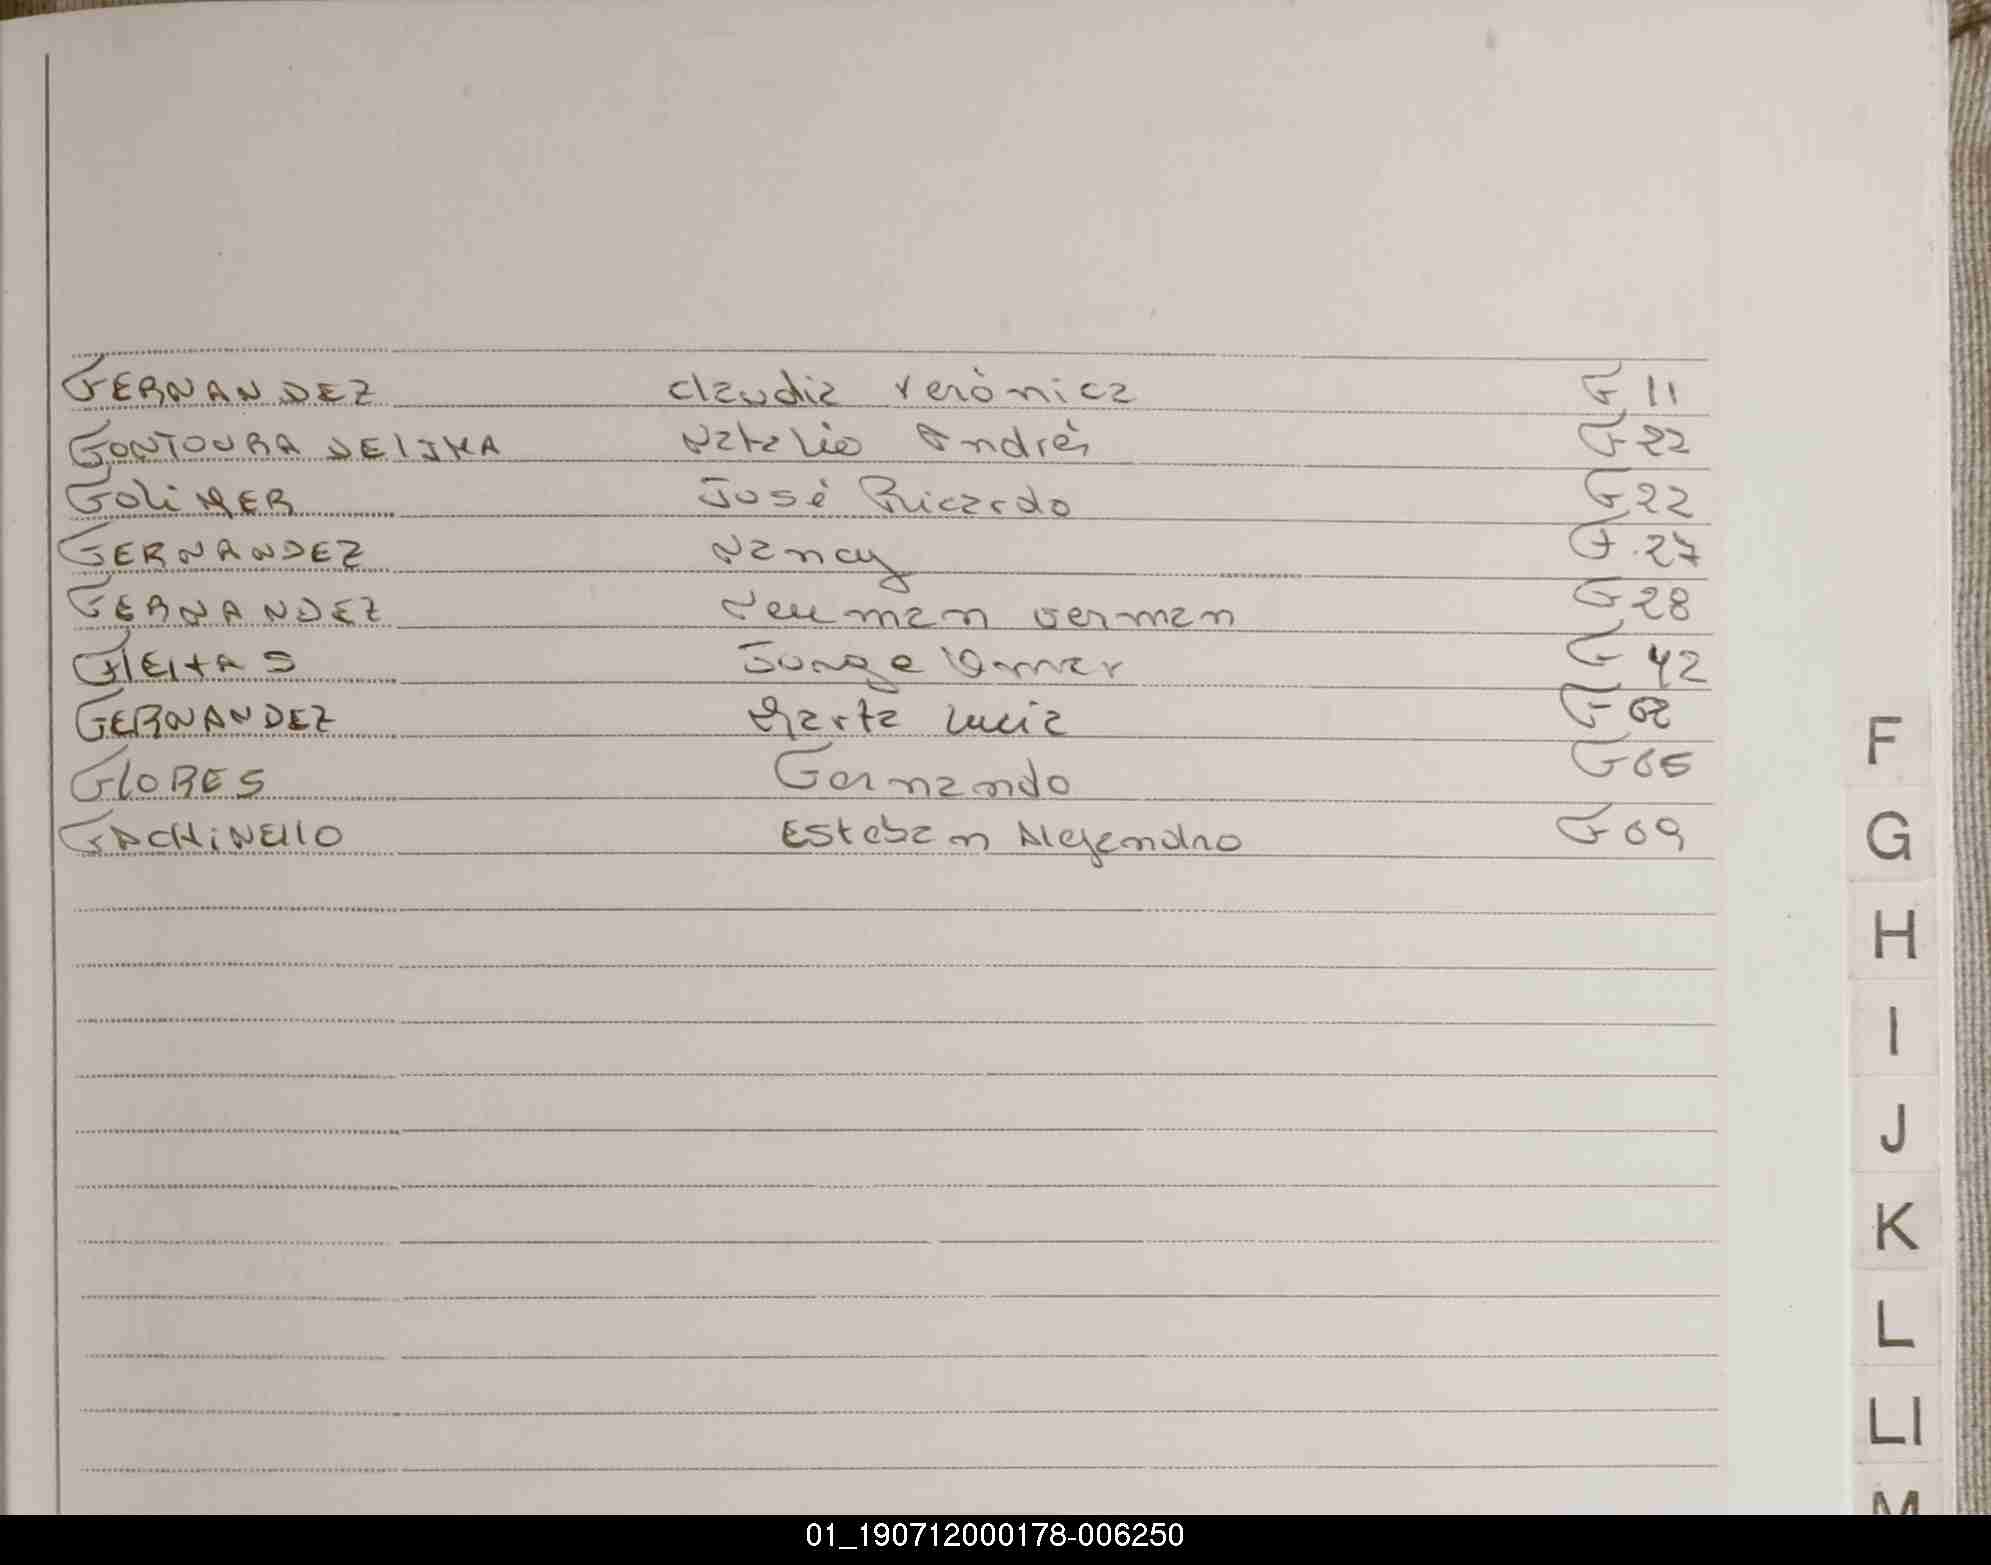 FERNANDEZ Claudia Verónica F 11
FONTOURA DELIMA Natalio Andrés F 22
FOLIMER José Ricardo F 22
FERNANDEZ Nancy F 27
FERNANDEZ German F 28
FLEITAS Jorge Omar F 42
FERNANDEZ Marta Lucia F 62
FLORES Fernando F 65
FACHINELLO Esteban Alejandro F 69
F
G
H
I
J
K
L
Ll
M
01_190712000178-006250